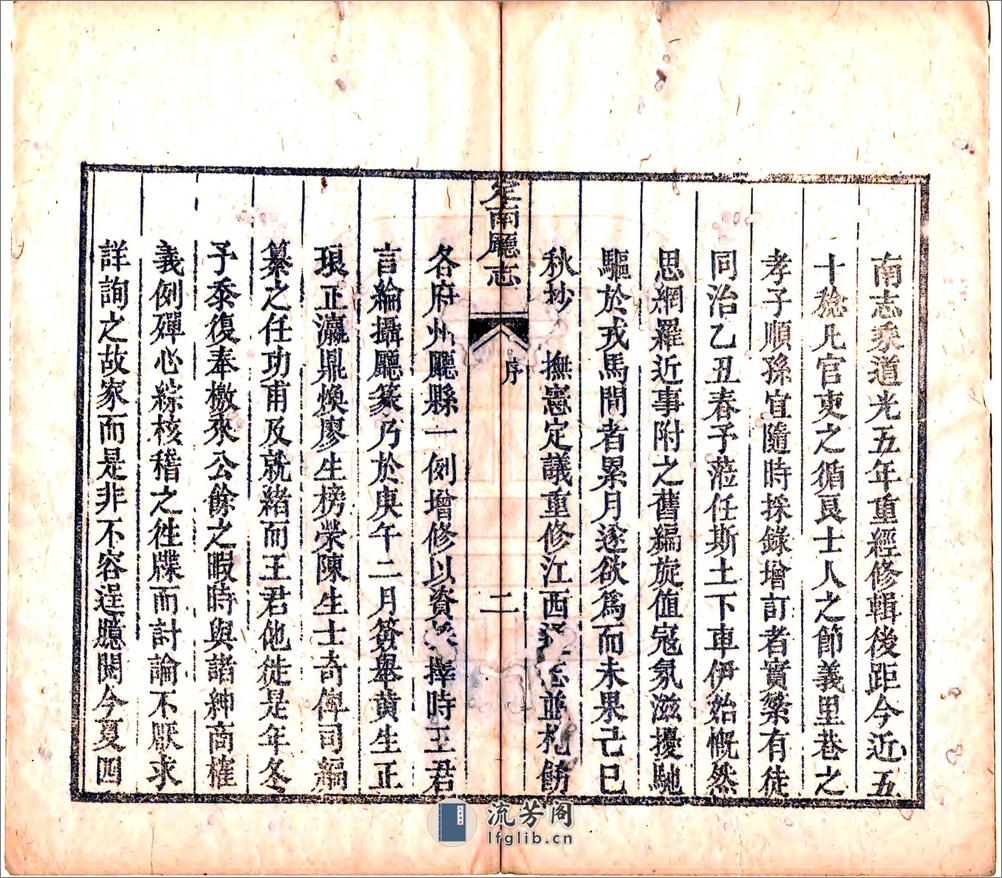 南志乘道光五年重經修輯後距今近五
十稔凡官吏之循良士人之節義里巷之
孝子順孫宜隨時採錄增訂者實繁有徒
同治乙丑春予蒞任斯土下車伊始慨然
思網羅近事附之舊編旋值寇氛滋擾馳
驅於戎馬間者累月遂欲爲而未果己巳
秋抄 撫憲定議重修江西志並札飭
定南廳志
序
二
各府州廳縣一例增修以資擇時王君
言綸攝廳篆乃於庚午二月簽舉黄生正
琅正瀛鼎煥廖生榜榮陳生士奇俾司編
纂之任功甫及就緒而王君他徙是年冬
予黍復奉檄來公餘之暇時與諸紳商榷
義例殫心綜核稽之徃牒而討論不厭求
詳詢之故家而是非不容逞臆閱今夏四
流芳阁
lfglib.cn